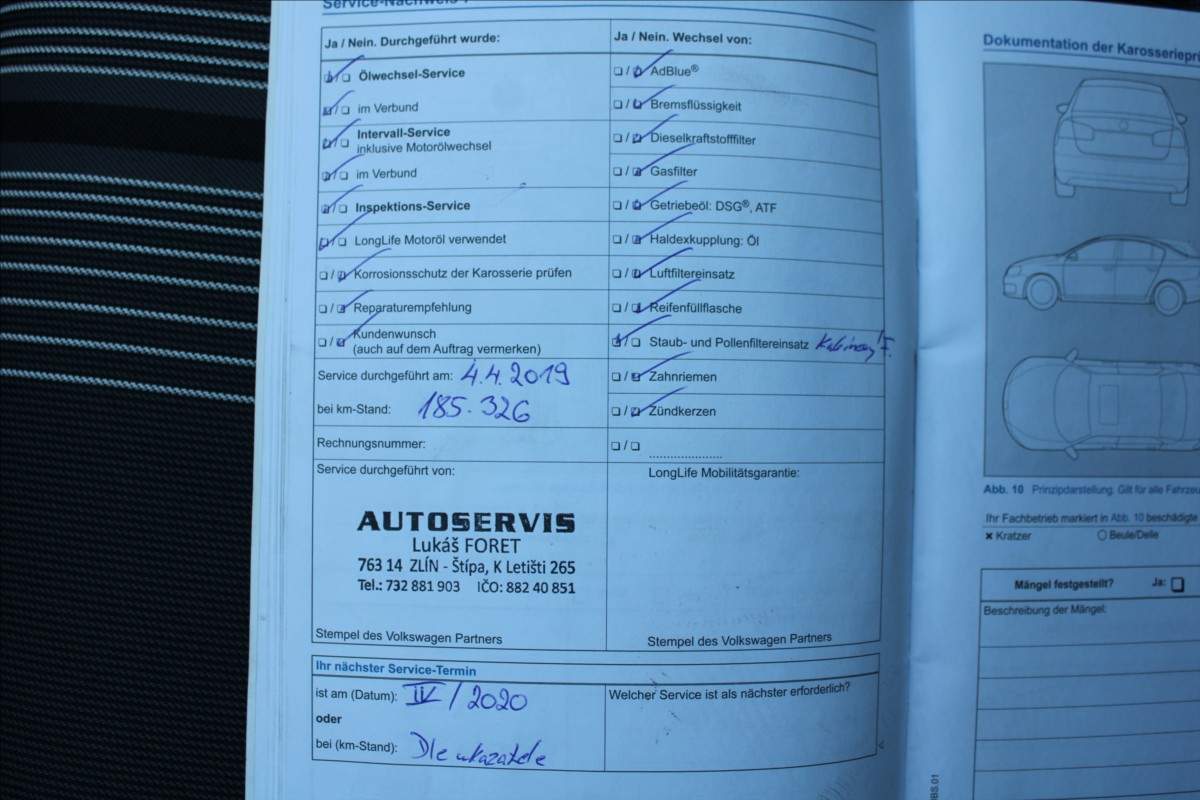 Service-Nachweis
Ja / Nein. Durchgeführt wurde:
Ölwechsel-Service
im Verbund
Intervall-Service
inklusive Motorölwechsel
im Verbund
Inspektions-Service
LongLife Motoröl verwendet
Korrosionsschutz der Karosserie prüfen
Reparaturempfehlung
Kundenwunsch
(auch auf dem Auftrag vermerken)
Service durchgeführt am: 4.4.2019
bei km-Stand: 185.326
Rechnungsnummer:
Service durchgeführt von:
AUTOSERVIS
Lukáš FORET
763 14 ZLÍN - Štípa, K Letišti 265
Tel.: 732 881 903 IČO: 882 40 851
Stempel des Volkswagen Partners
Ja / Nein. Wechsel von:
AdBlue®
Bremsflüssigkeit
Dieselkraftstofffilter
Gasfilter
Getriebeöl: DSG®, ATF
Haldexkupplung: Öl
Luftfiltereinsatz
Reifenfüllflasche
Staub- und Pollenfiltereinsatz
Zahnriemen
Zündkerzen
LongLife Mobilitätsgarantie:
Stempel des Volkswagen Partners
Ihr nächster Service-Termin
ist am (Datum): IV / 2020
oder
bei (km-Stand): Dle ukazatele
Welcher Service ist als nächster erforderlich?
Dokumentation der
Abb. 10 Prinzipdarstellung. Gilt für alle
Ihr Fachbetrieb markiert in Abb. 10
× Kratzer
Beule/Delle
Mängel festgestellt? Ja:
Beschreibung der Mängel: